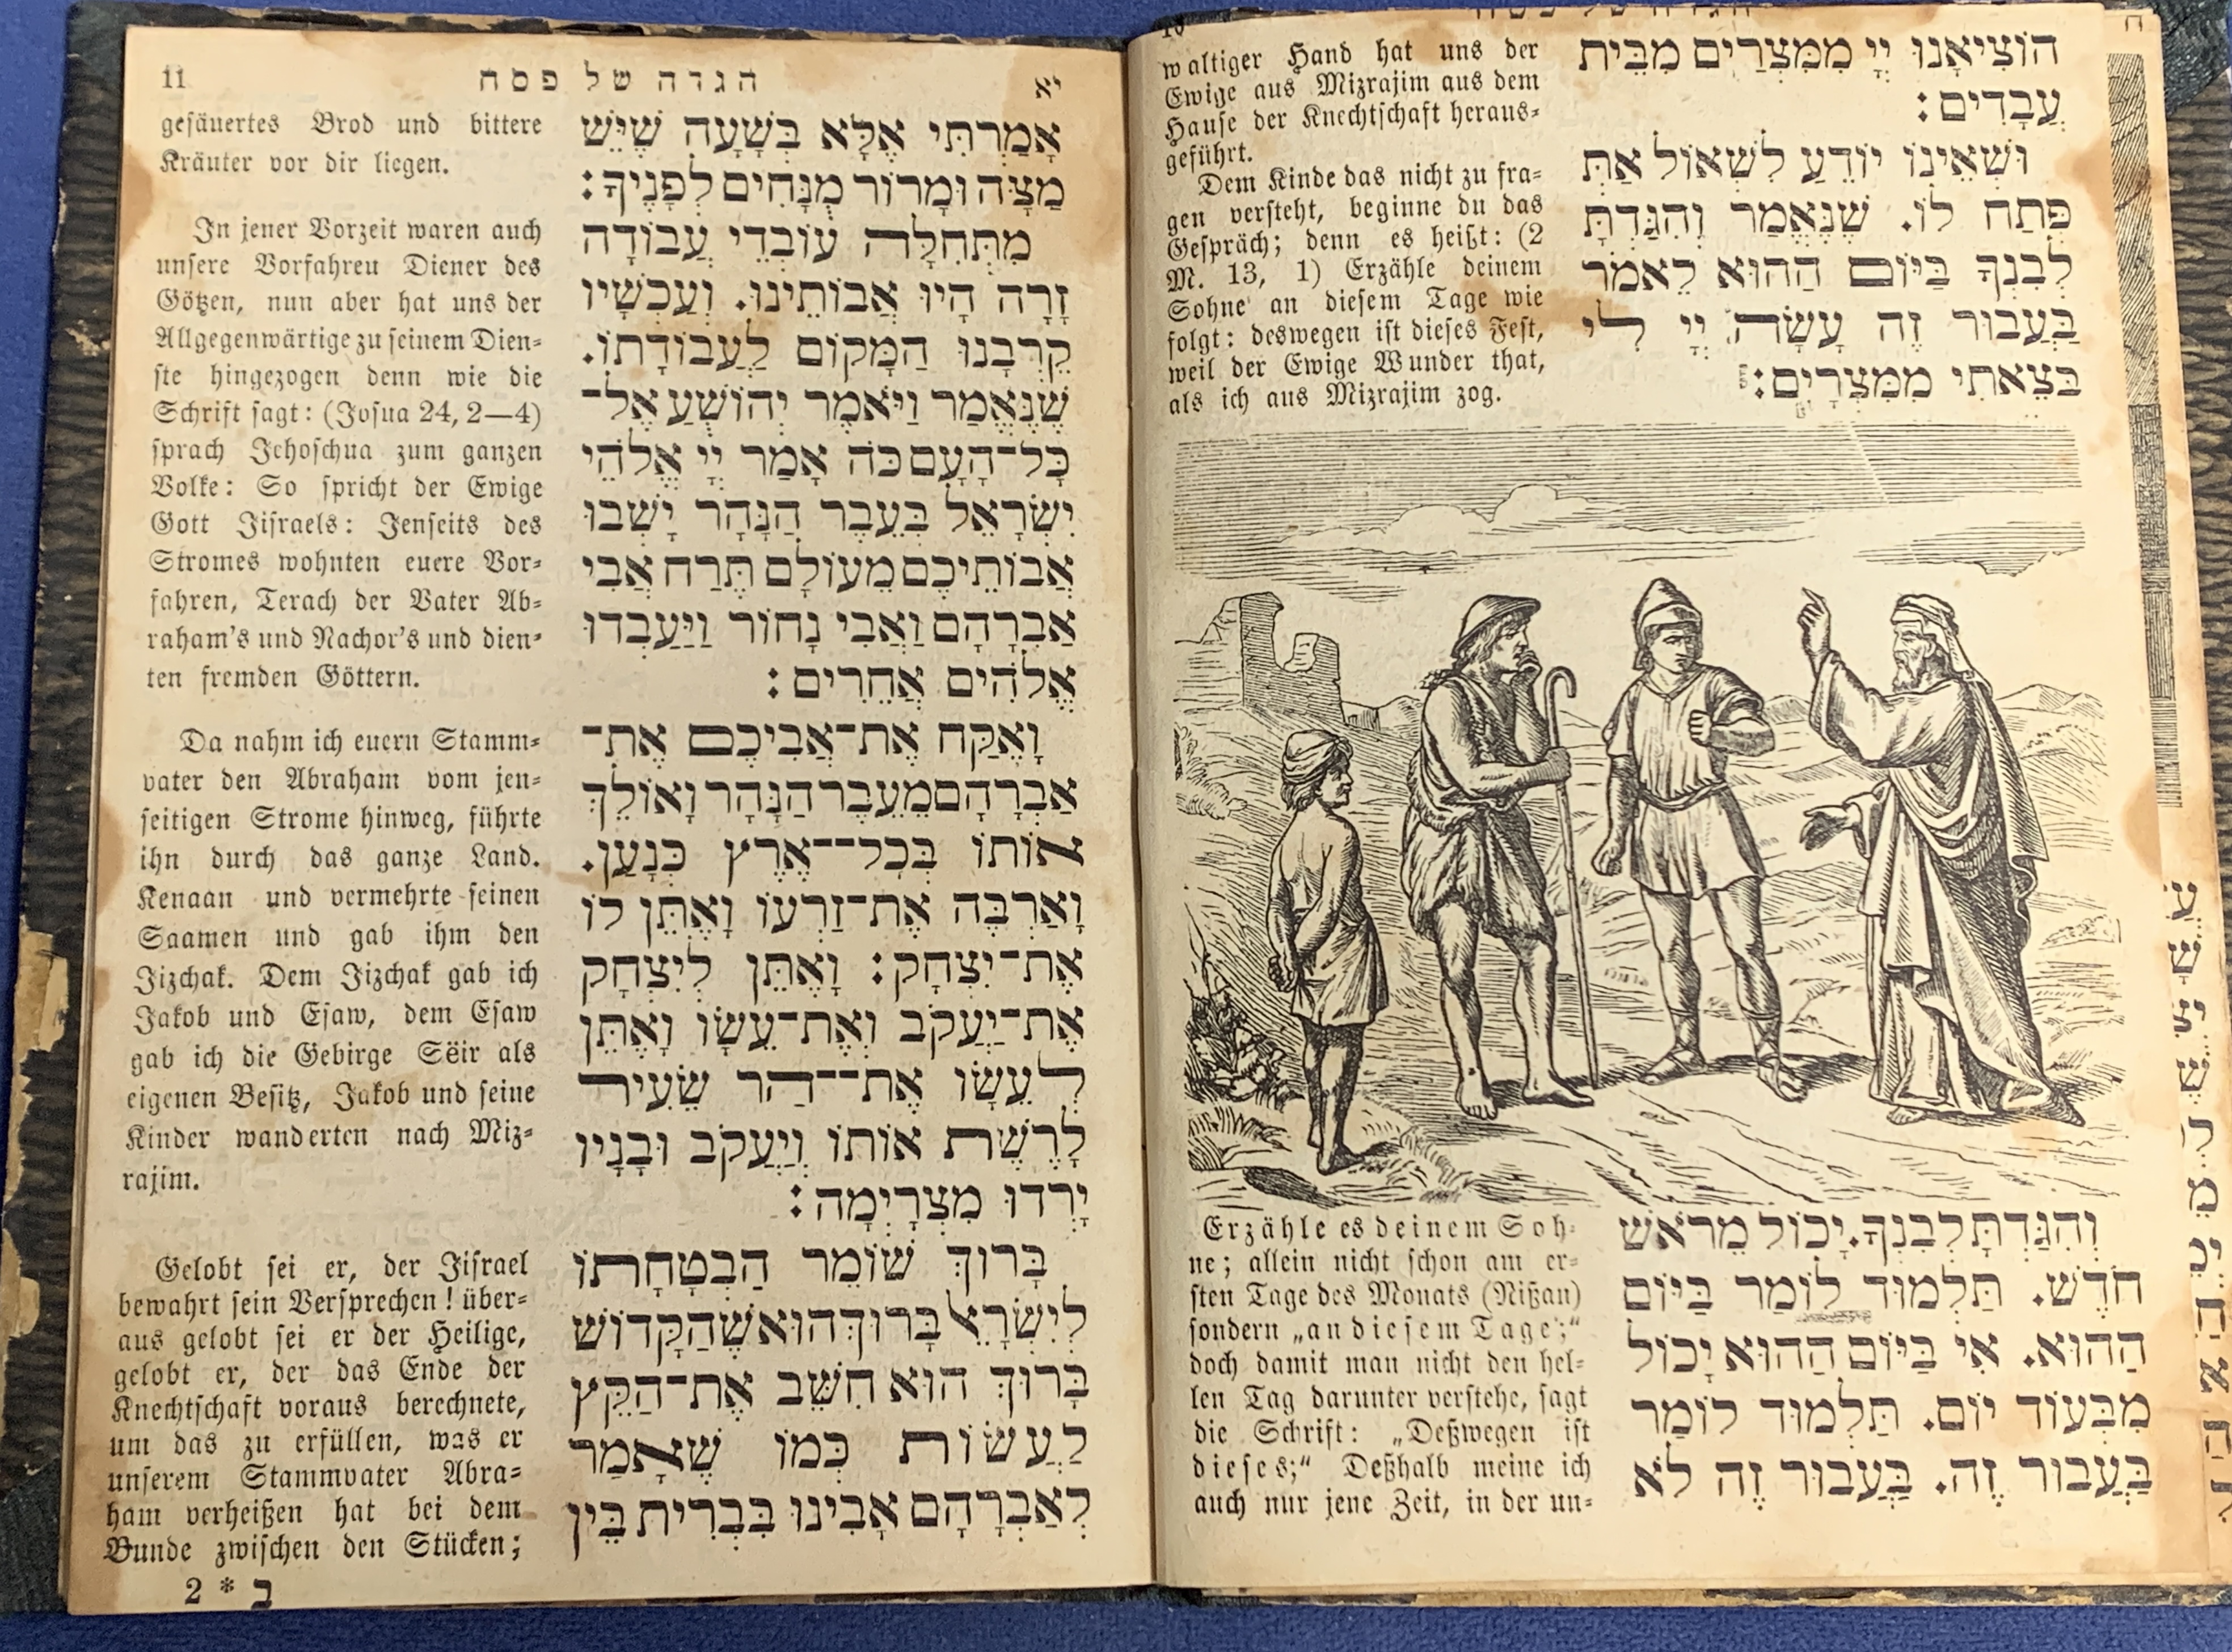 הוֹצִיאָנוּ יְיָ מִמִּצְרַיִם מִבֵּית
עֲבָדִים:
וְשֶׁאֵינוֹ יוֹדֵעַ לִשְׁאוֹל אַתְּ
פְּתַח לוֹ. שֶׁנֶּאֱמַר וְהִגַּדְתָּ
לְבִנְךָ בַּיּוֹם הַהוּא לֵאמֹר
בַּעֲבוּר זֶה עָשָׂה יְיָ לִי
בְּצֵאתִי מִמִּצְרָיִם:
waltiger Hand hat uns der
Ewige aus Mizrajim aus dem
Hause der Knechtschaft heraus-
geführt.
Dem Kinde das nicht zu fra-
gen versteht, beginne du das
Gespräch; denn es heißt: (2
M. 13, 1) Erzähle deinem
Sohne an diesem Tage wie
folgt: deswegen ist dieses Fest,
weil der Ewige Wunder that,
als ich aus Mizrajim zog.
וְהִגַּדְתָּ לְבִנְךָ. יָכוֹל מֵרֹאשׁ
חֹדֶשׁ. תַּלְמוּד לוֹמַר בַּיּוֹם
הַהוּא. אִי בַּיּוֹם הַהוּא יָכוֹל
מִבְּעוֹד יוֹם. תַּלְמוּד לוֹמַר
בַּעֲבוּר זֶה. בַּעֲבוּר זֶה לֹא
Erzähle es deinem Soh-
ne; allein nicht schon am er-
sten Tage des Monats (Nißan)
sondern „an diesem Tage;“
doch damit man nicht den hel-
len Tag darunter verstehe, sagt
die Schrift: „Deßwegen ist
dieses;“ Deßhalb meine ich
auch nur jene Zeit, in der un-
11 הגדה של פסח יא
אָמַרְתִּי אֶלָּא בְּשָׁעָה שֶׁיֵּשׁ
מַצָּה וּמָרוֹר מֻנָּחִים לְפָנֶיךָ:
מִתְּחִלָּה עוֹבְדֵי עֲבוֹדָה
זָרָה הָיוּ אֲבוֹתֵינוּ. וְעַכְשָׁיו
קֵרְבָנוּ הַמָּקוֹם לַעֲבוֹדָתוֹ.
שֶׁנֶּאֱמַר וַיֹּאמֶר יְהוֹשֻׁעַ אֶל־
כָּל־הָעָם כֹּה אָמַר יְיָ אֱלֹהֵי
יִשְׂרָאֵל בְּעֵבֶר הַנָּהָר יָשְׁבוּ
אֲבוֹתֵיכֶם מֵעוֹלָם תֶּרַח אֲבִי
אַבְרָהָם וַאֲבִי נָחוֹר וַיַּעַבְדוּ
אֱלֹהִים אֲחֵרִים:
וָאֶקַּח אֶת־אֲבִיכֶם אֶת־
אַבְרָהָם מֵעֵבֶר הַנָּהָר וָאוֹלֵךְ
אוֹתוֹ בְּכָל־אֶרֶץ כְּנָעַן.
וָאַרְבֶּה אֶת־זַרְעוֹ וָאֶתֵּן לוֹ
אֶת־יִצְחָק: וָאֶתֵּן לְיִצְחָק
אֶת־יַעֲקֹב וְאֶת־עֵשָׂו וָאֶתֵּן
לְעֵשָׂו אֶת־הַר שֵׂעִיר
לָרֶשֶׁת אוֹתוֹ וְיַעֲקֹב וּבָנָיו
יָרְדוּ מִצְרָיְמָה:
בָּרוּךְ שׁוֹמֵר הַבְטָחָתוֹ
לְיִשְׂרָאֵל בָּרוּךְ הוּא שֶׁהַקָּדוֹשׁ
בָּרוּךְ הוּא חִשֵּׁב אֶת־הַקֵּץ
לַעֲשׂוֹת כְּמוֹ שֶׁאָמַר
לְאַבְרָהָם אָבִינוּ בִּבְרִית בֵּין
gesäuertes Brod und bittere
Kräuter vor dir liegen.
In jener Vorzeit waren auch
unsere Vorfahren Diener des
Götzen, nun aber hat uns der
Allgegenwärtige zu seinem Dien-
ste hingezogen denn wie die
Schrift sagt: (Josua 24, 2—4)
sprach Jehoschua zum ganzen
Volke: So spricht der Ewige
Gott Jisraels: Jenseits des
Stromes wohnten euere Vor-
fahren, Terach der Vater Ab-
raham's und Nachor's und dien-
ten fremden Göttern.
Da nahm ich euern Stamm-
vater den Abraham vom jen-
seitigen Strome hinweg, führte
ihn durch das ganze Land.
Kenaan und vermehrte seinen
Saamen und gab ihm den
Jizchak. Dem Jizchak gab ich
Jakob und Esaw, dem Esaw
gab ich die Gebirge Sëir als
eigenen Besitz, Jakob und seine
Kinder wanderten nach Miz-
rajim.
Gelobt sei er, der Jisrael
bewahrt sein Versprechen! über-
aus gelobt sei er der Heilige,
gelobt er, der das Ende der
Knechtschaft voraus berechnete,
um das zu erfüllen, was er
unserem Stammvater Abra-
ham verheißen hat bei dem
Bunde zwischen den Stücken;
2 * ב